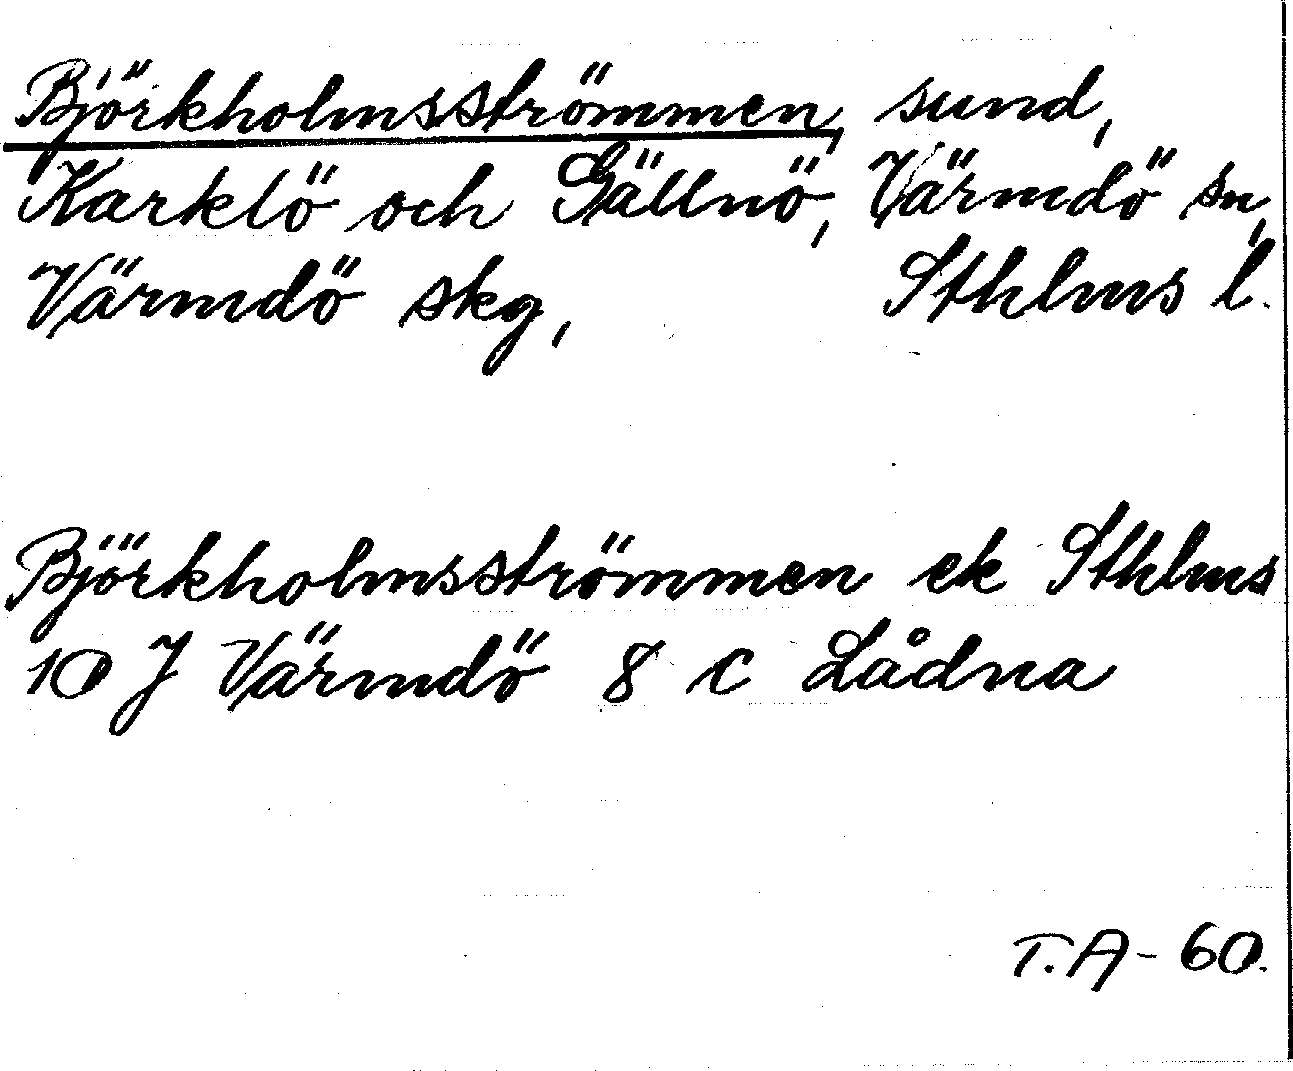 Björkholmsströmmen, sund,
Karklö och Gällnö, Värmdö sn,
Värmdö skg, Sthlms l.
Björkholmsströmmen ek Sthlms
10 J Värmdö 8 c Lådna
T.A-60.